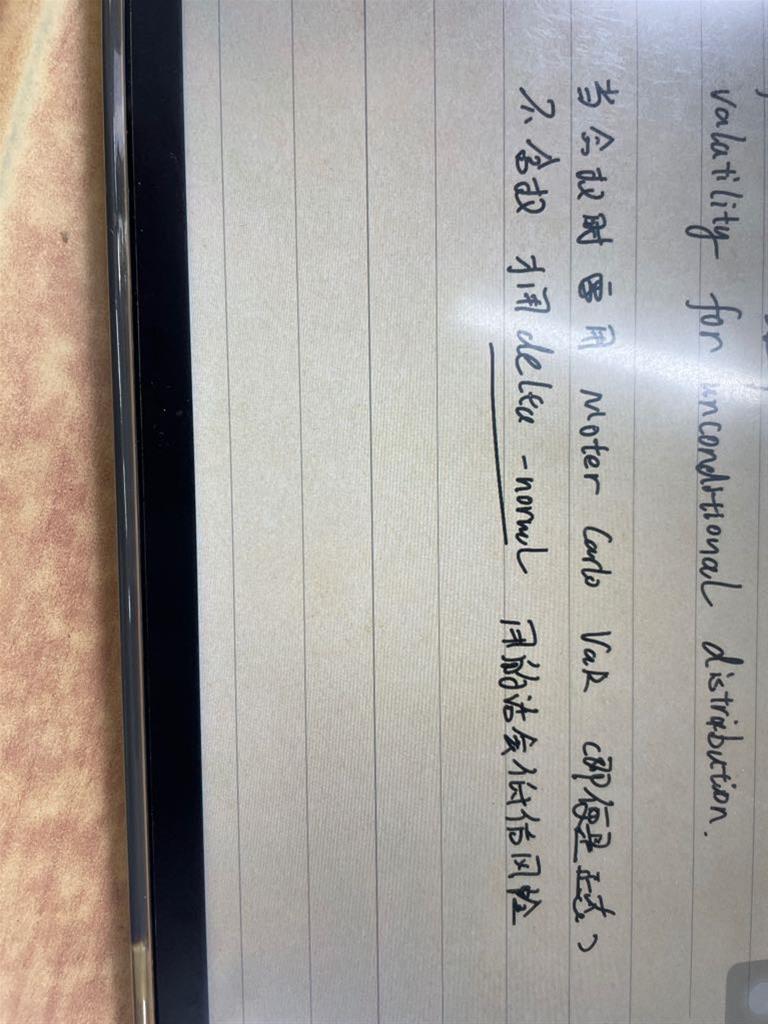 valatility for unconditional distribution.
当含权时 要用 Moter Carlo VaR (即使是正态)
不含权 才用 delta-normal 用的话会低估风险